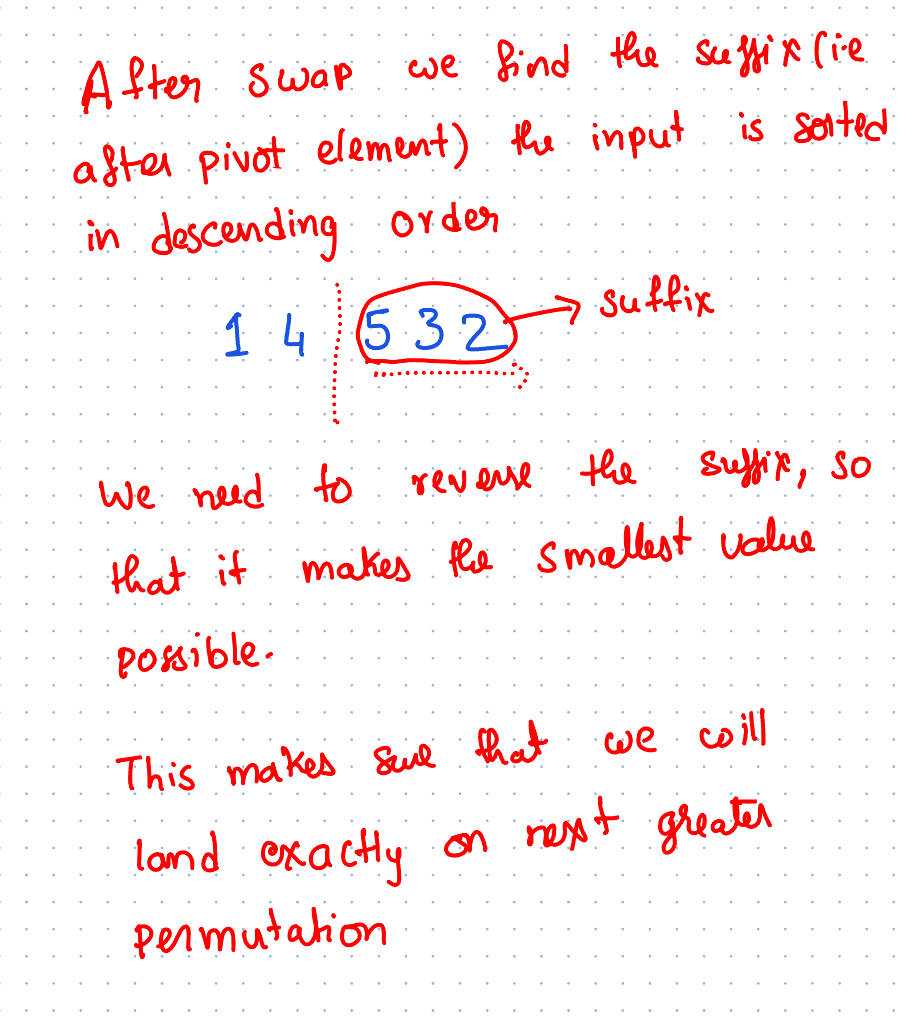 After swap we find the suffix (i.e
after pivot element) the input is sorted
in descending order
1 4 5 3 2 → suffix
We need to reverse the suffix, so
that it makes the smallest value
possible.
This makes sure that we will
land exactly on next greater
permutation